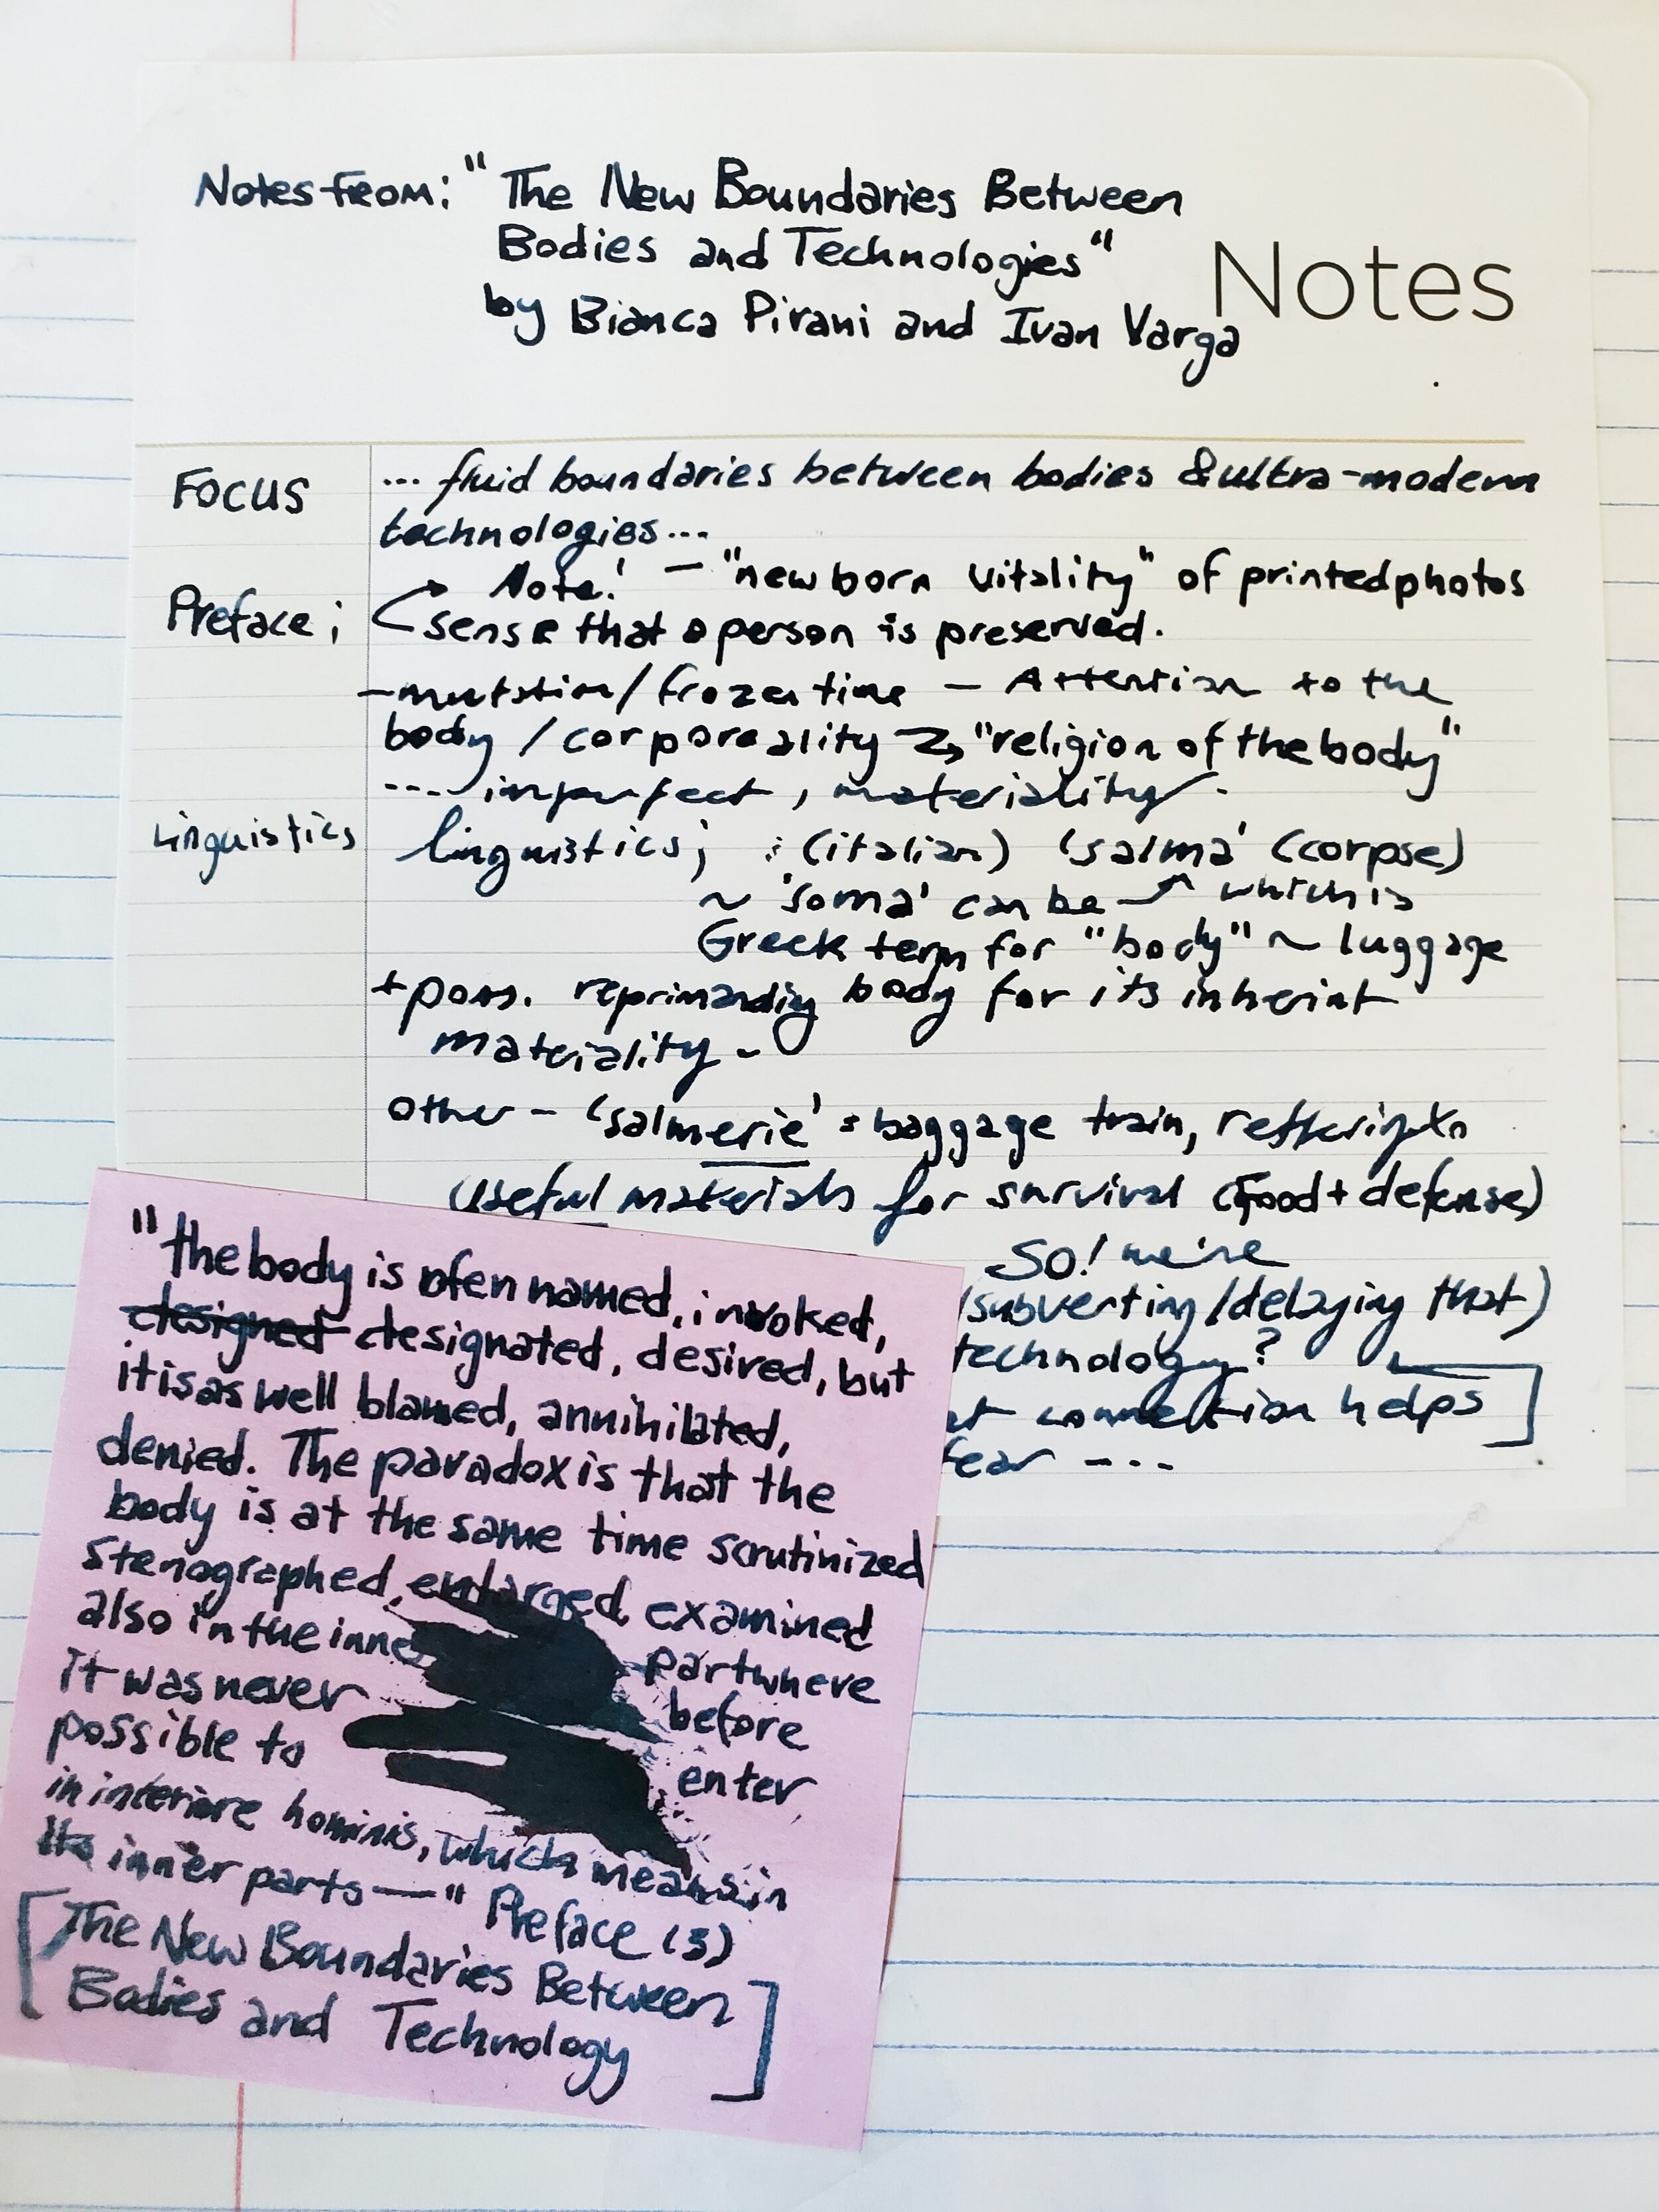 Notes from: "The New Boundaries Between
Bodies and Technologies"
Notes
by Bianca Pirani and Ivan Varga
Focus
... fluid boundaries between bodies & ultra-modern
technologies...
Preface;
Note! — "new born vitality" of printed photos
sense that a person is preserved.
— mutation/frozen time — Attention to the
body / corporeality → "religion of the body"
.... imperfect, materiality.
Linguistics
linguistics; : (italian) 'salma' (corpse)
~ 'soma' can be → which is
Greek term for "body" ~ luggage
+ poss. reprimanding body for its inherint
materiality -
other - 'salmerie' = baggage train, reffering to
useful materials for survival (food + defense)
So! we're
(subverting/delaying that)
technology?
connection helps
fear ---
"the body is ofen named, invoked,
designed designated, desired, but
it is as well blamed, annihilated,
denied. The paradox is that the
body is at the same time scrutinized
stenographed, enlarged, examined
also in the inner part where
it was never before
possible to enter,
in interiore hominis, which means in
its inner parts —" Preface (3)
[The New Boundaries Between
Bodies and Technology]